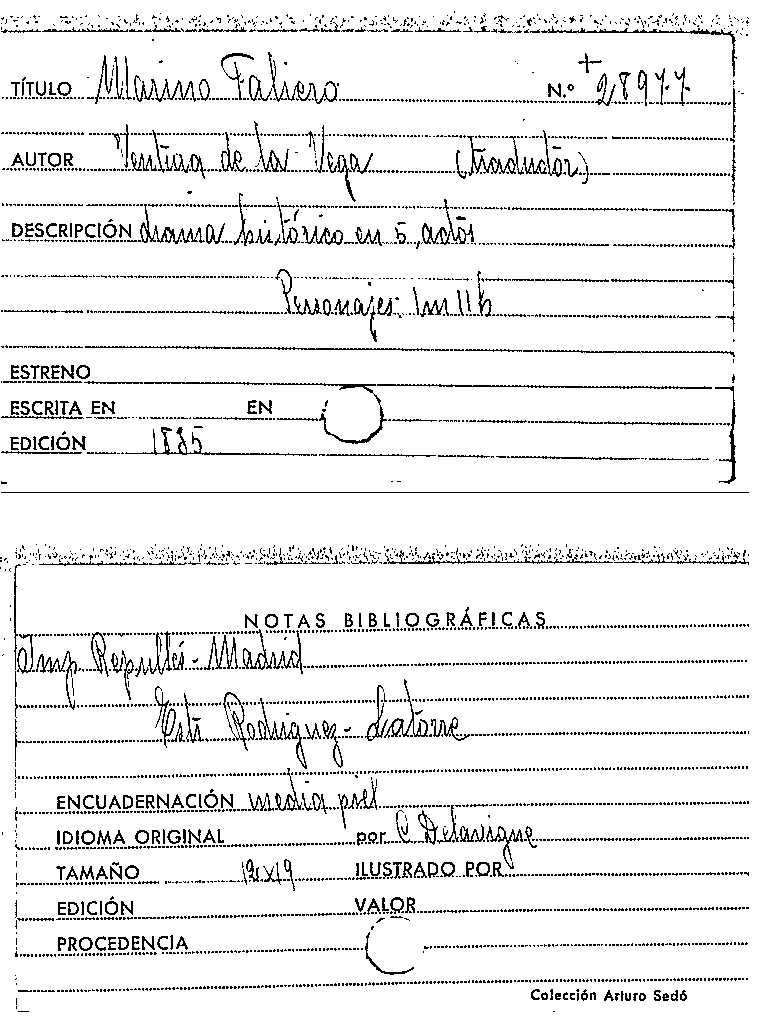 TÍTULO Marino Faliero N.º + 28977
AUTOR Ventura de la Vega (traductor)
DESCRIPCIÓN drama histórico en 5 actos
Personajes: 1m 11h
ESTRENO
ESCRITA EN EN
EDICIÓN 1885
NOTAS BIBLIOGRÁFICAS
Imp Repullés - Madrid
Rodriguez - Latorre
ENCUADERNACIÓN media piel
IDIOMA ORIGINAL por C Delavigne
TAMAÑO ILUSTRADO POR
EDICIÓN VALOR
PROCEDENCIA
Colección Arturo Sedó